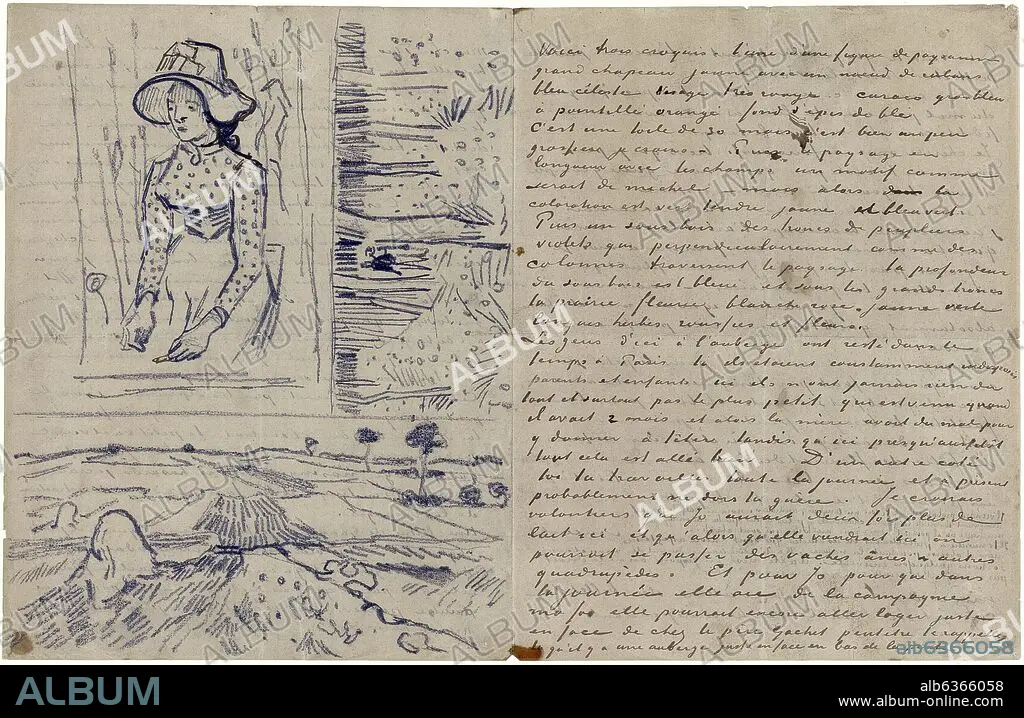 Voici trois croquis – l'une d'une figure de paysanne
grand chapeau jaune avec un nœud de rubans
bleu céleste visage très rouge – caraco gros bleu
à pointillé orangé fond d'épis de blé.
C'est une toile de 30 mais c'est bien un peu
grossier je crains – Puis le paysage en
longueur avec les champs un motif comme
serait de michel – mais alors la
coloration est vert tendre jaune et bleu vert.
Puis un sous bois des troncs de peupliers
violets qui perpendiculairement comme des
colonnes traversent le paysage la profondeur
du sous bois est bleue et sous les grands troncs
la prairie fleurie blanche rose jaune verte
longues herbes rousses et fleurs.
Les gens d'ici à l'auberge ont resté dans le
temps à Paris là étaient constamment indisposés
parents et enfants ici ils n'ont jamais rien du
tout et surtout pas le plus petit qui est venu quand
il avait 2 mois et alors la mère avait du mal pour
y donner à têter tandis qu'ici presqu'aussitôt
tout cela est allé D'un autre côté
toute la journée et à présent
probablement dors la guère. Je croirais
volontiers Jo aurait deux fois plus de
lait ici et qu'alors qu'elle viendrait ici on
pourrait se passer des vaches ânes & autres
quadrupèdes. Et pour Jo pour que dans
la journée elle aie de la campagne
ma foi elle pourrait encore aller loger juste
en face de chez le père Gachet peutêtre te rappelles
tu qu'il y a une auberge juste en face en bas de la
ALBUM
alb6366058
ALBUM
alb6366058
www.album-online.com